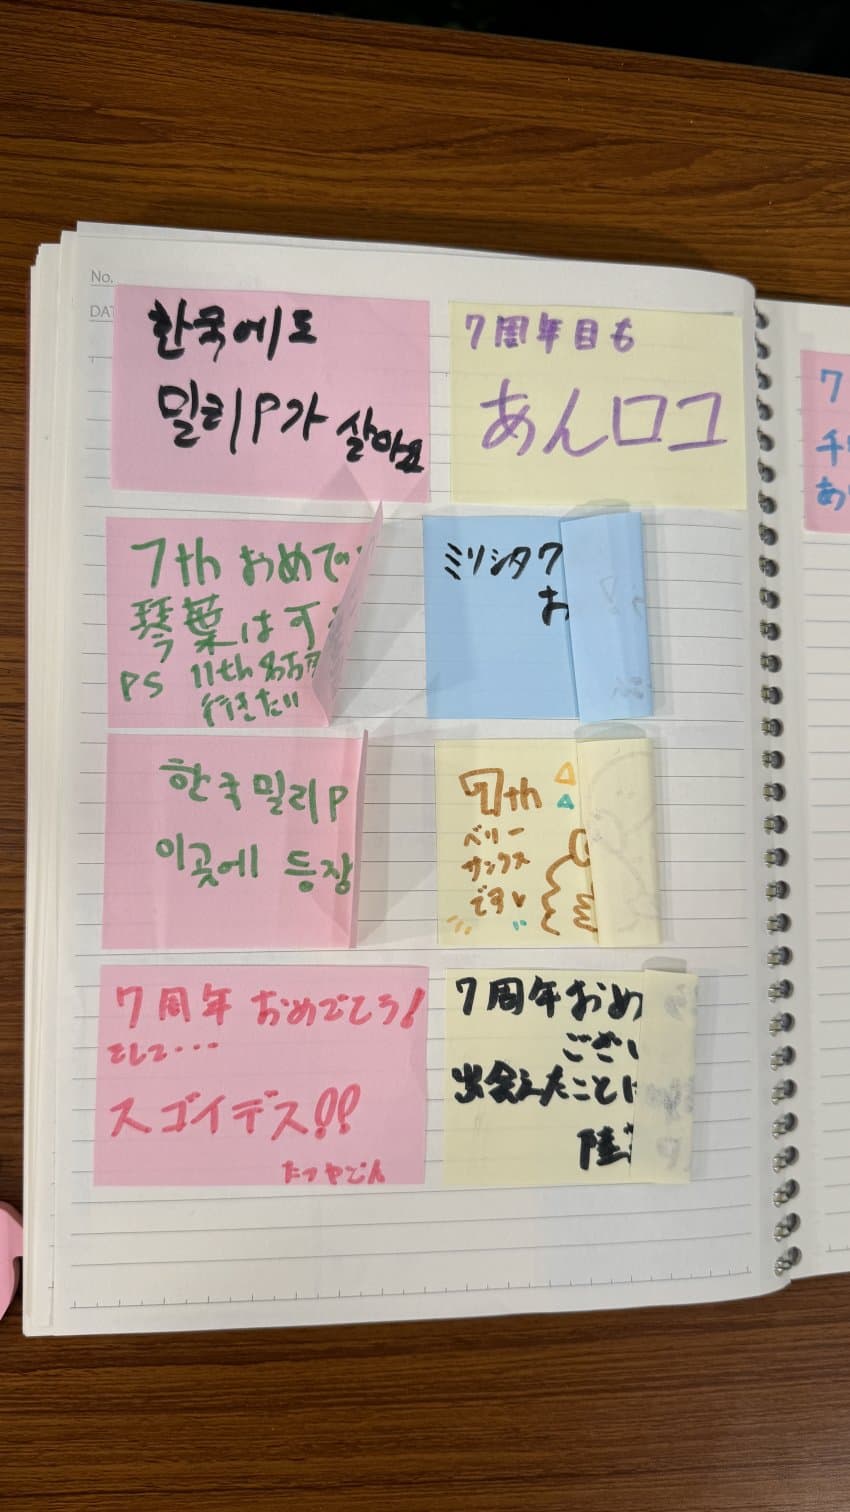 No.
DAT
한국에도
밀리P가 살아요
7周年目も
あんロコ
7th おめで
琴葉はす
PS 11th 名古屋
行きたい
ミリシタ7
お
한국 밀리P
이곳에 등장
7th
ベリー
サンクス
です
7周年 おめでとう!
そして・・・
スゴイデス!!
たつやどん
7周年おめ
ござい
出会えたことに
陸
7
千
あ